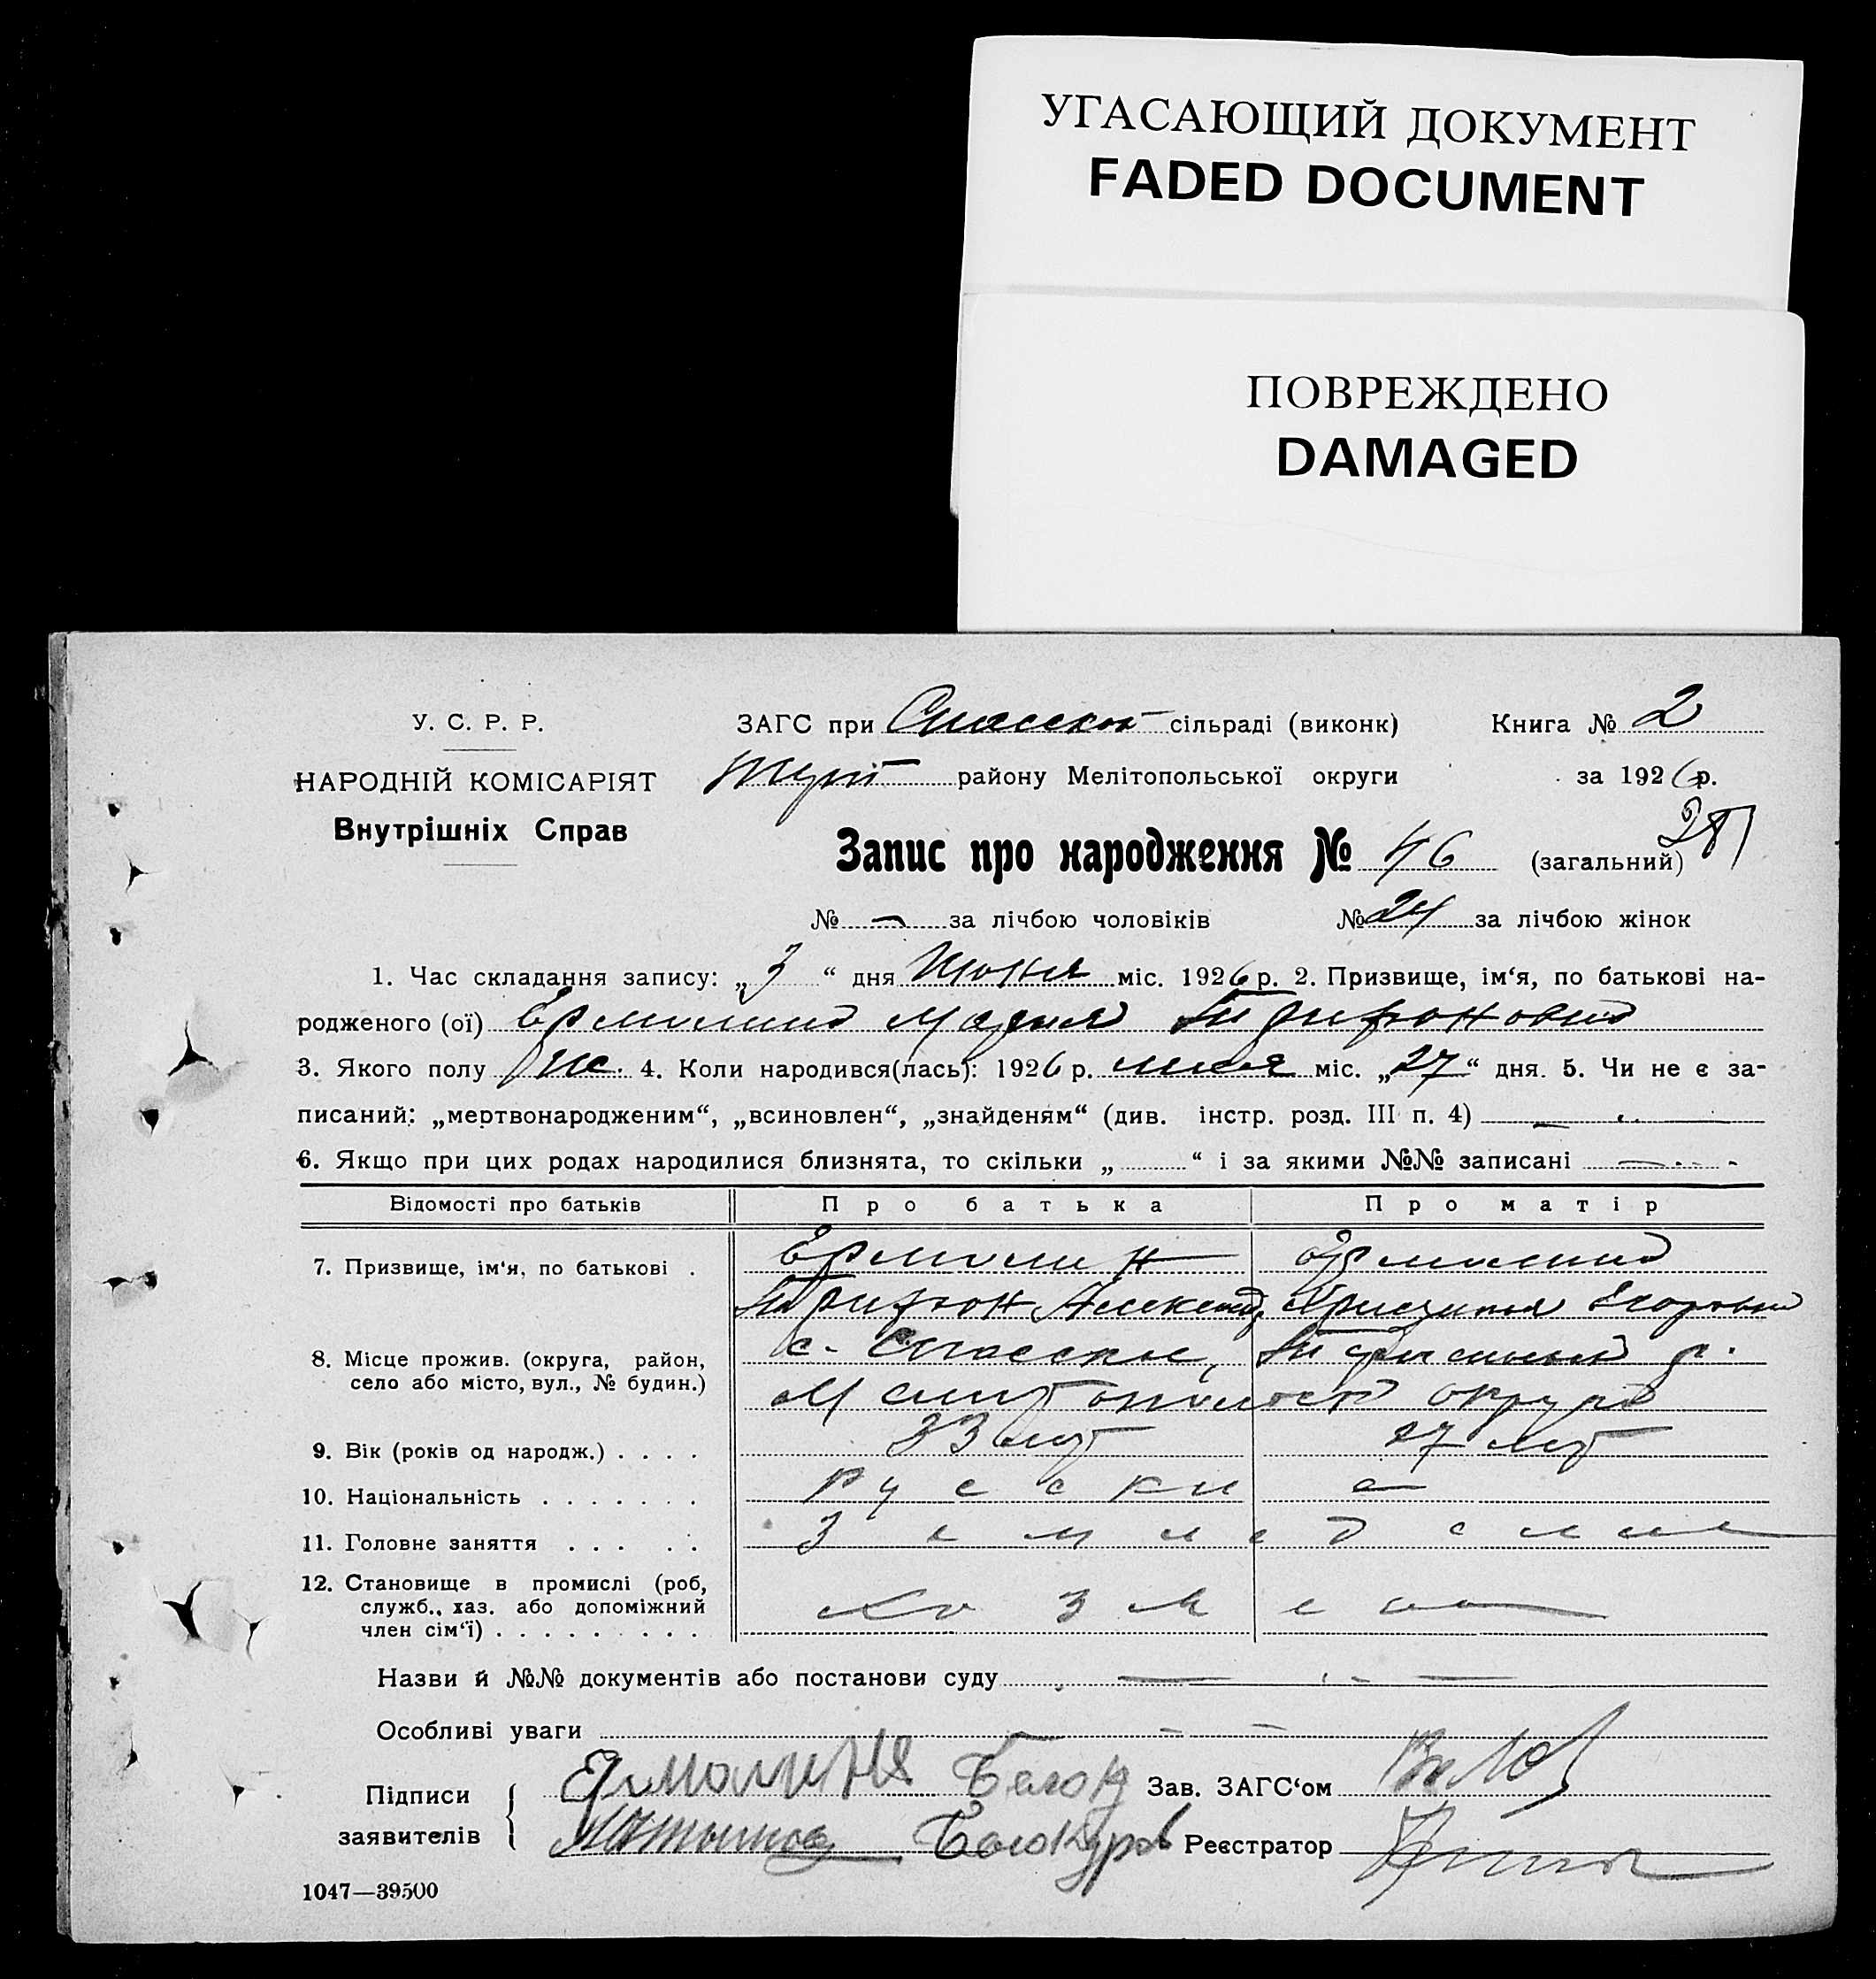 УГАСАЮЩИЙ ДОКУМЕНТ
FADED DOCUMENT
ПОВРЕЖДЕНО
DAMAGED
У. С. Р. Р.
НАРОДНІЙ КОМІСАРІЯТ
Внутрішніх Справ
ЗАГС при Спасской сільраді (виконк) Книга № 2
району Мелітопольської округи за 1926 р.
Запис про народження № 46 (загальний)
№ — за лічбою чоловіків № 24 за лічбою жінок
1. Час складання запису: „3“ дня Июня міс. 1926 р. 2. Призвище, ім‘я, по батькові на-
родженого (ої) Ермолина Мария Трифоновна
3. Якого полу жс. 4. Коли народився(лась): 1926 р. мая міс. „27“ дня. 5. Чи не є за-
писаний: „мертвонародженим“, „всиновлен“, „знайденям“ (див. інстр. розд. III п. 4) —
6. Якщо при цих родах народилися близнята, то скільки „ “ і за якими №№ записані —
Відомості про батьків Про батька Про матір
7. Призвище, ім‘я, по батькові . Ермолин Ермолина
Трифон Александ. Егоровна
8. Місце прожив. (округа, район,
село або місто, вул., № будин.)
с. Спасское,
Мелитопольской округа
9. Вік (років од народж.) . . . . 33 лет 27 лет
10. Національність . . . . . . . русские
11. Головне заняття . . . . . Земледелие
12. Становище в промислі (роб,
служб., хаз. або допоміжний
член сім‘ї) . . . . . . . . .
Хозяева
Назви й №№ документів або постанови суду —
Особливі уваги — —
Підписи
заявителів
Ермолина
Белокуров
Зав. ЗАГС‘ом
Реєстратор
1047—39500